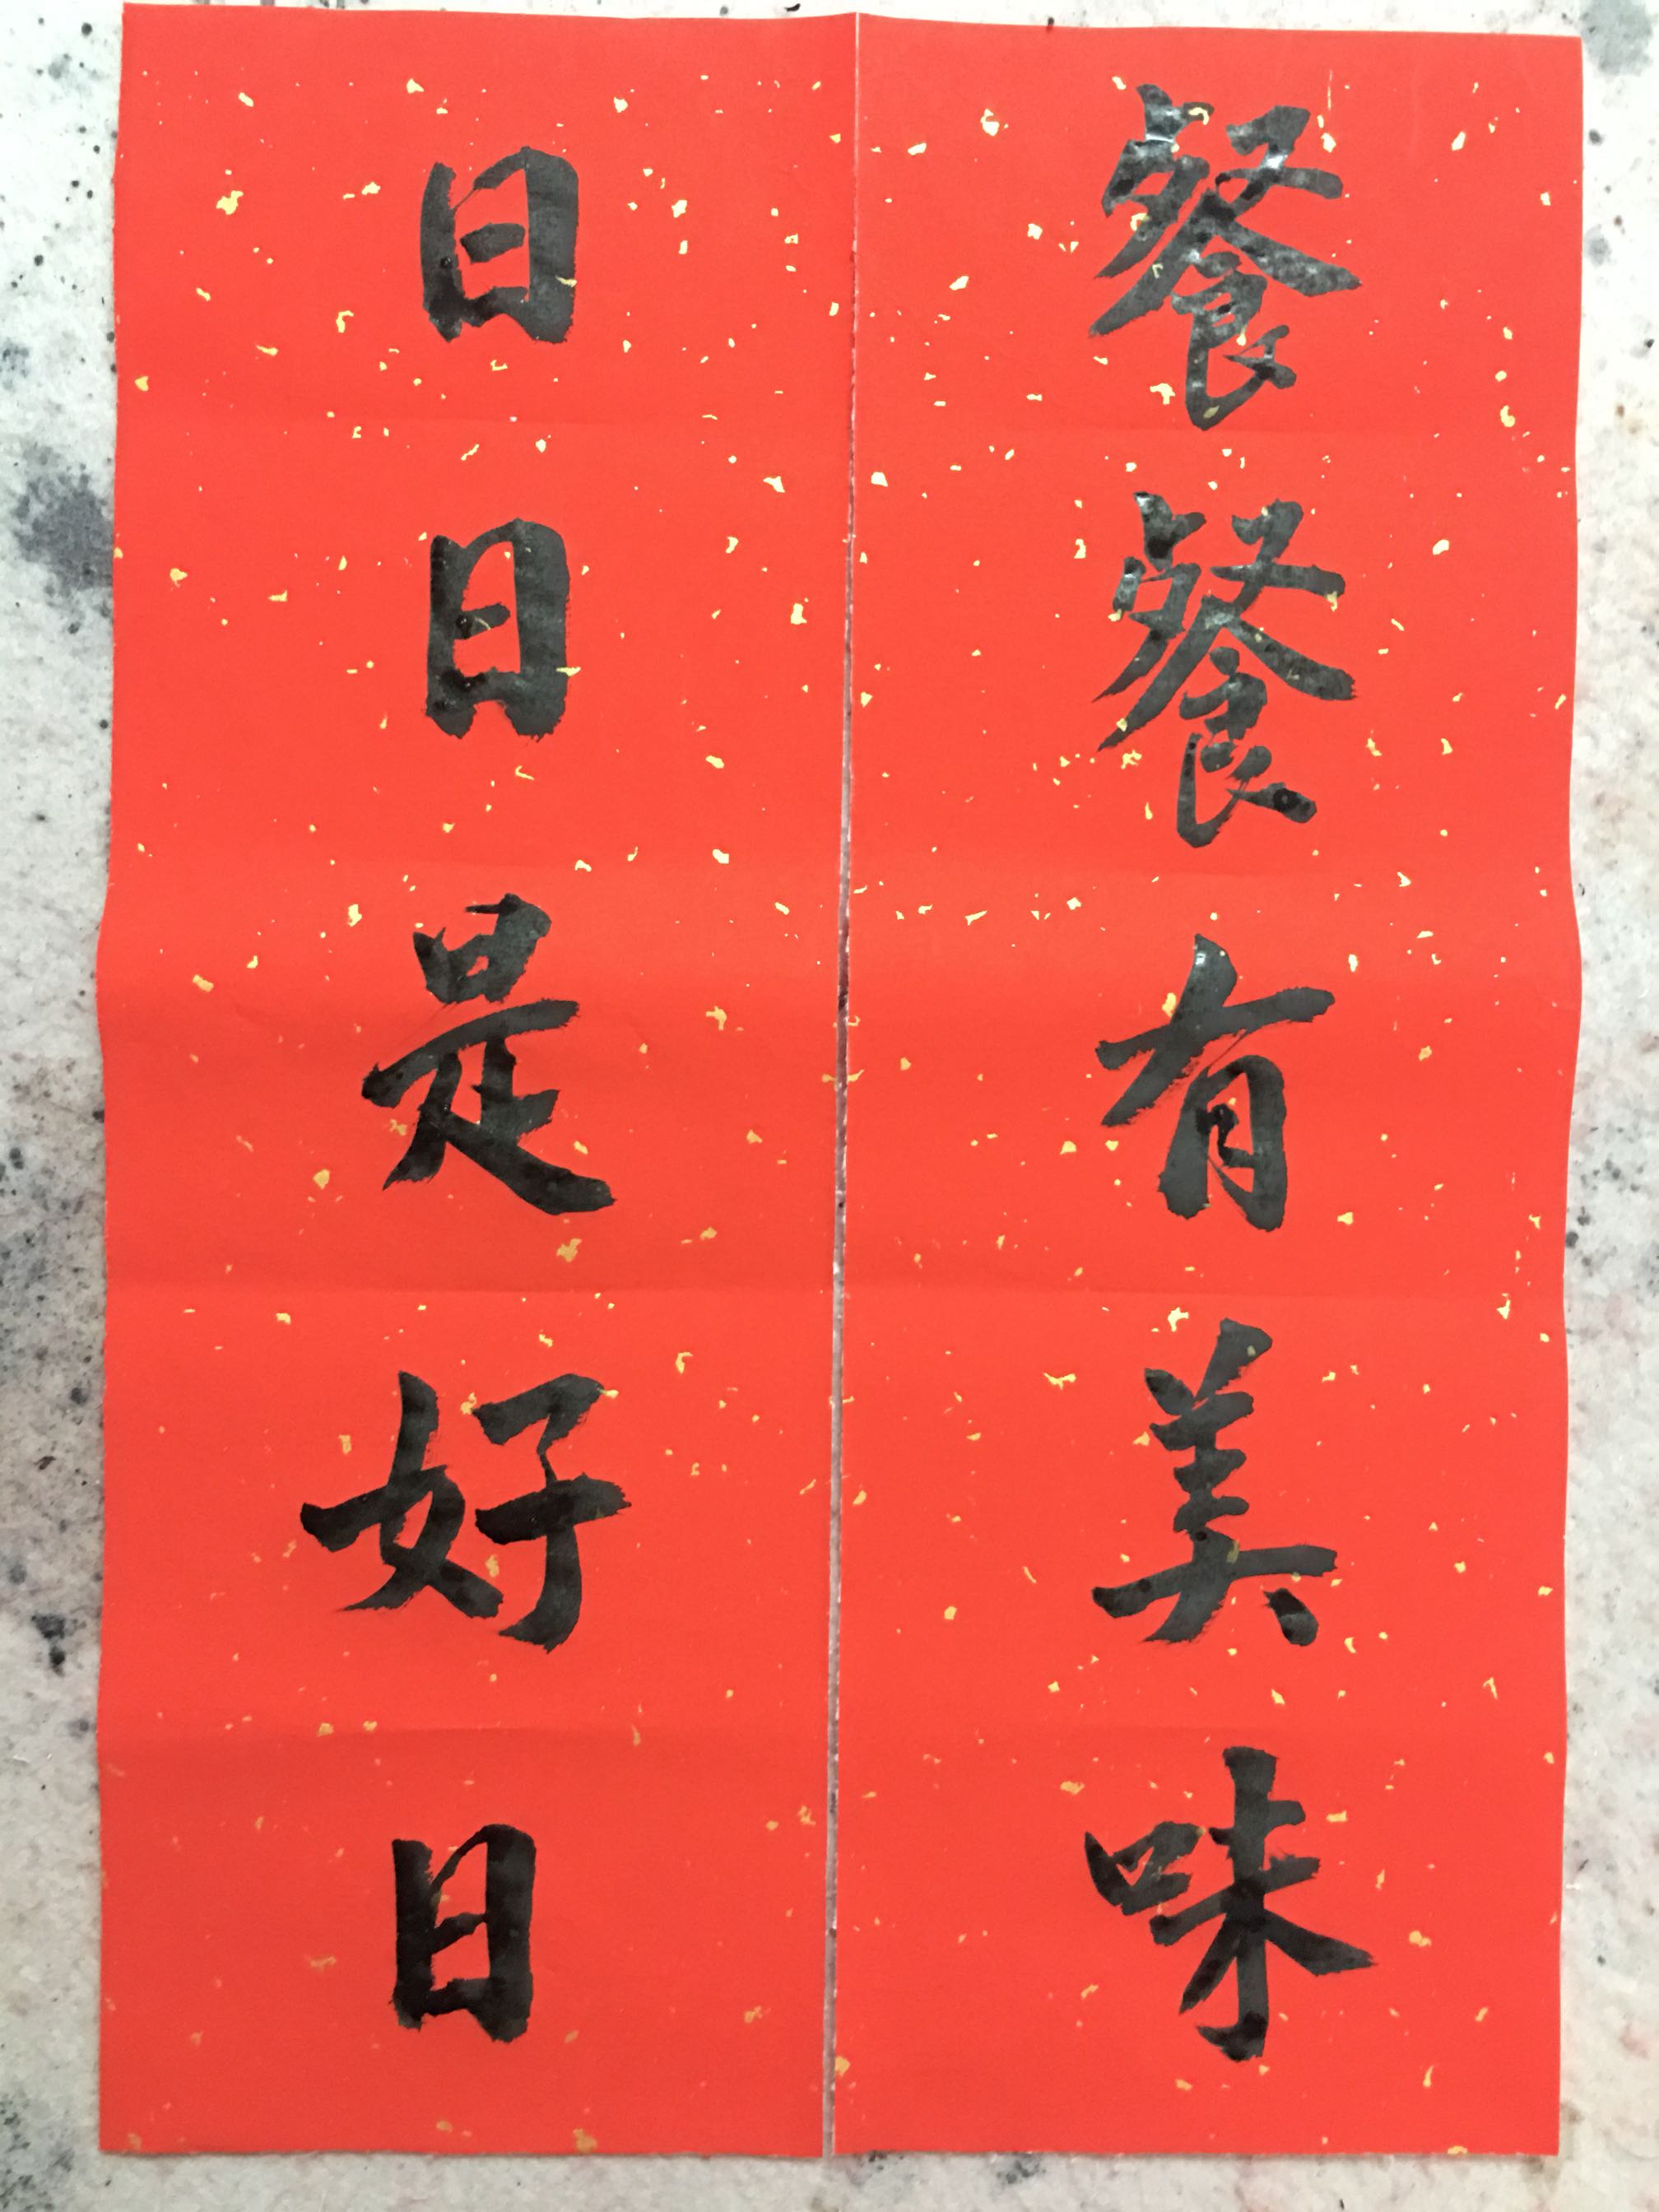 餐餐有美味
日日是好日